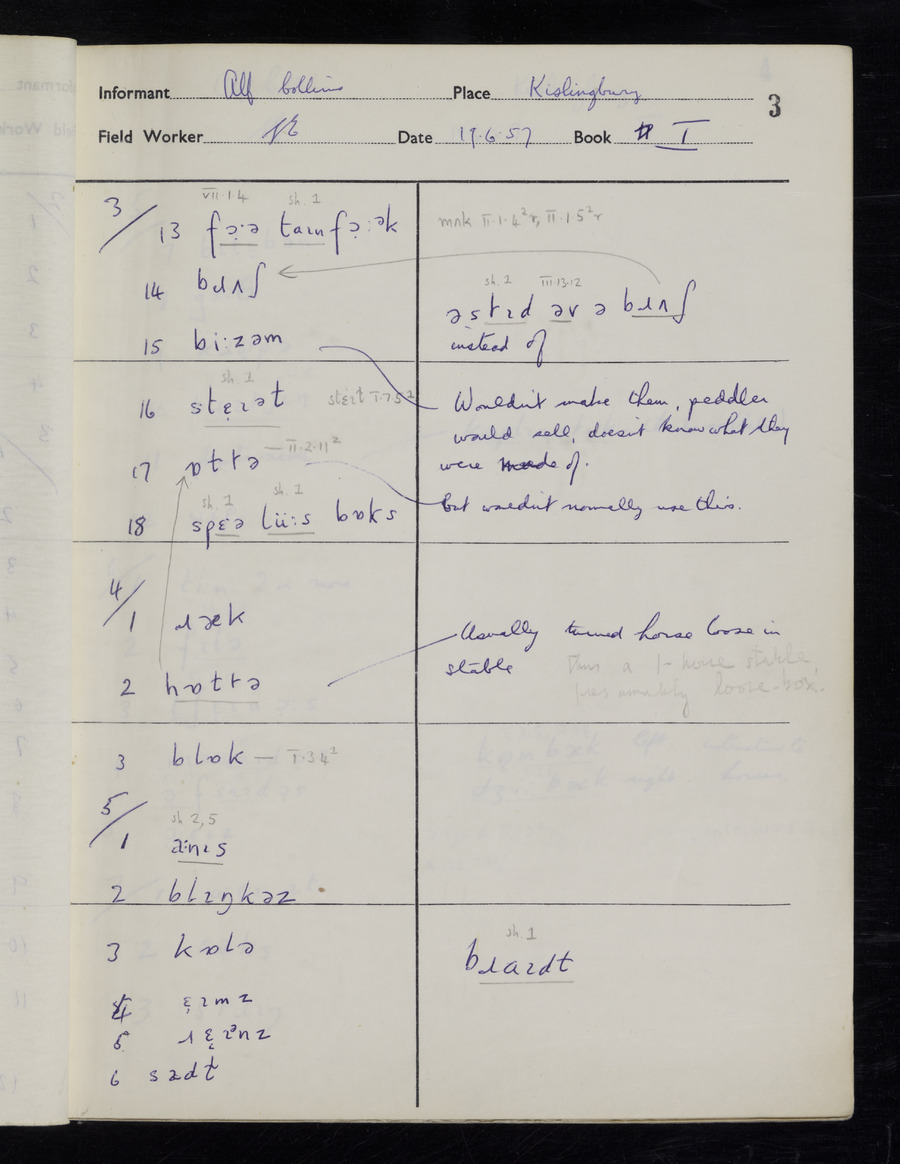 Informant Alf Collins Place Kislingbury 3
Field Worker Date 19.6.57 Book I
3/ VII.1.4 sh.1
13 fɔ̣ːə taɪnfɔ̣ːək
14 bɹʌʃ
15 biːzəm
mnk II.1.4²r, II.1.5²r
sh.1 III.13.12
əstɪd əv ə bɹʌʃ
instead of
sh.1
16 stɛ̣ɪət stɛɪt I.7.5²
17 ɒtɪə — II.2.11²
sh.1 sh.1
18 spɛːə lüːs bɒks
Wouldn't make them, peddler
would sell, doesn't know what they
were made of.
but wouldn't normally use this.
4/
1 ɹæk
2 hɒtɪə
Usually turned horse loose in
stable This a 1-horse stable,
presumably loose-box.
3 blɒk — I.3.4²
5/ sh 2,5
1 aːnɪs
2 blɪŋkəz
3 kɒlə
4 ɛ̣ɪmz
5 ɹɛ̣ɪnz
6 sadt
sh.1
bɹaɪdt